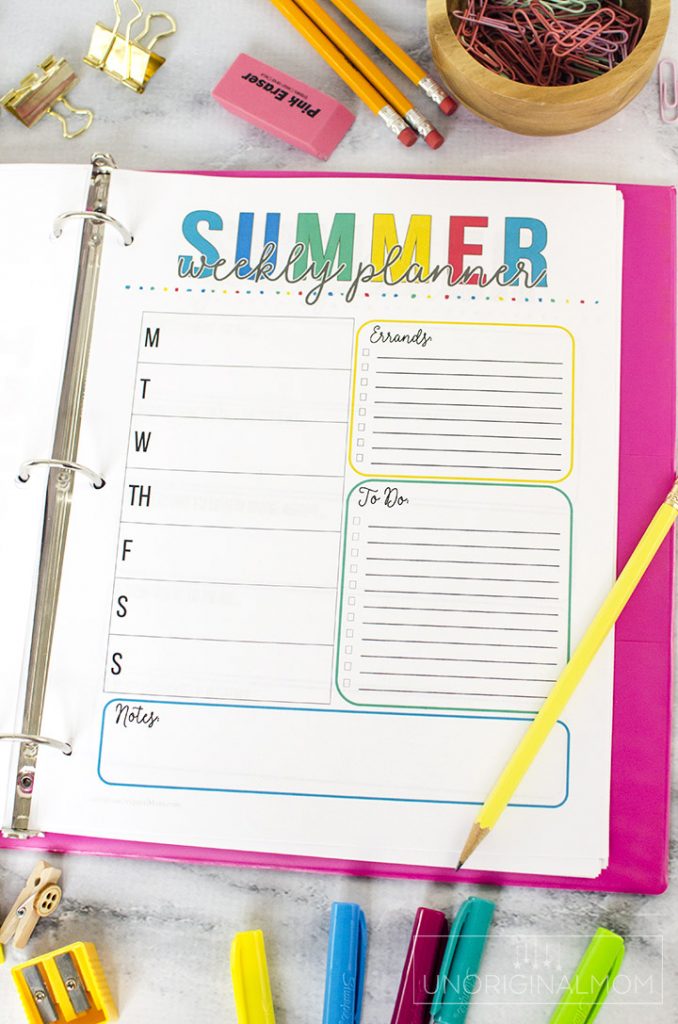 Pink Eraser
SUMMER
weekly planner
M
T
W
TH
F
S
S
Errands:
To Do:
Notes:
UNORIGINALMOM